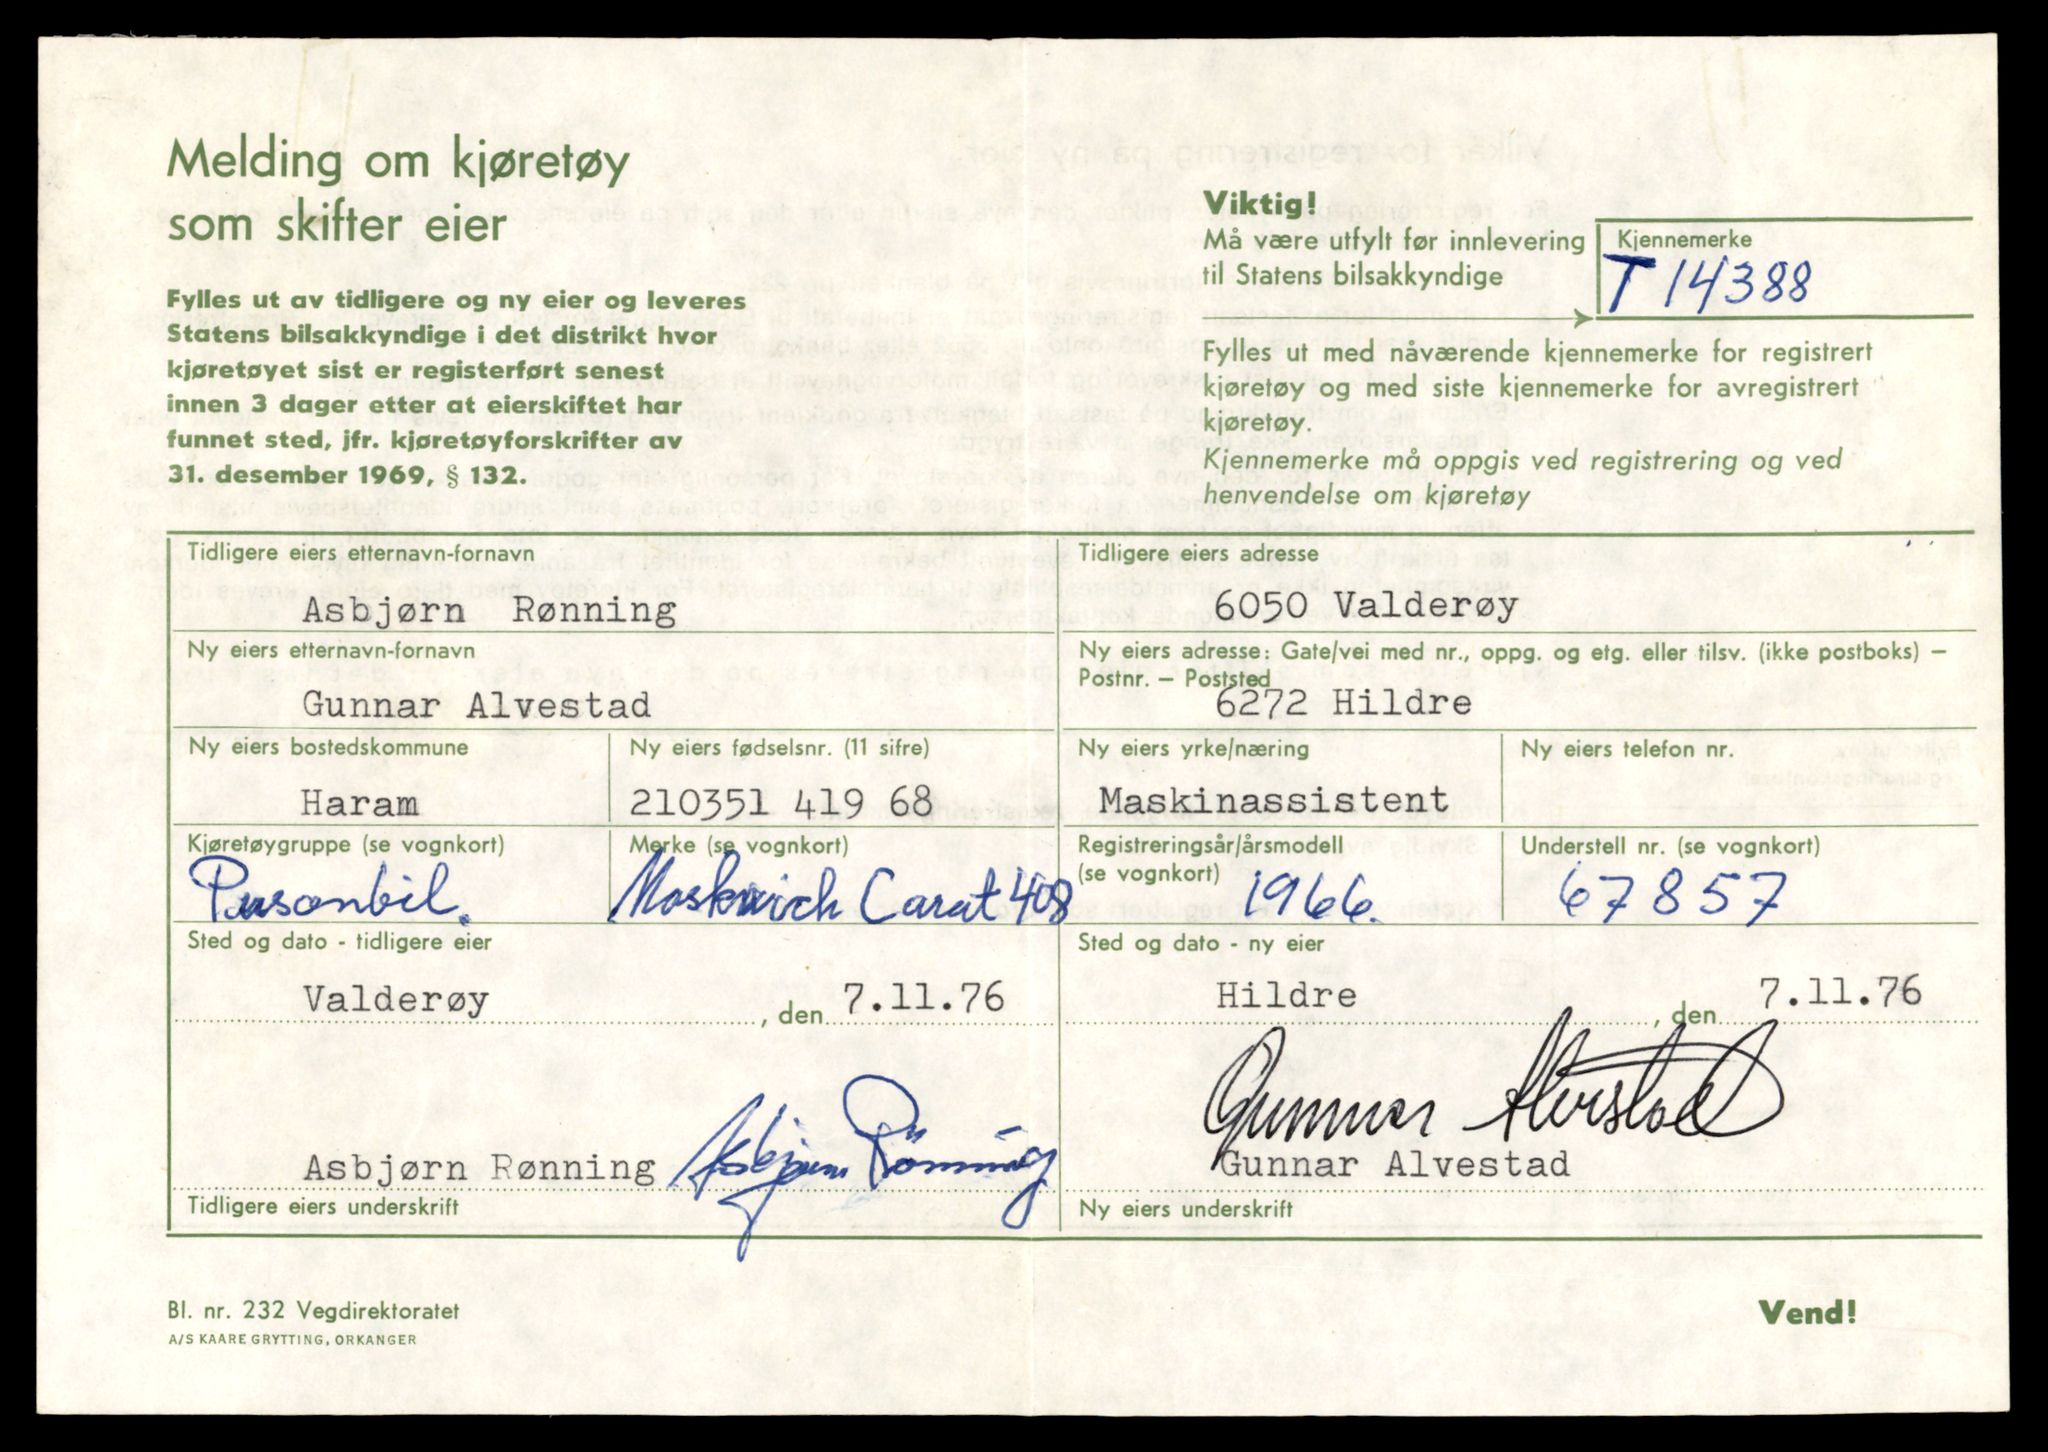 Melding om kjøretøy
som skifter eier
Fylles ut av tidligere og ny eier og leveres
Statens bilsakkyndige i det distrikt hvor
kjøretøyet sist er registerført senest
innen 3 dager etter at eierskiftet har
funnet sted, jfr. kjøretøyforskrifter av
31. desember 1969, § 132.
Viktig!
Må være utfylt før innlevering
til Statens bilsakkyndige
Kjennemerke
T 14388
Fylles ut med nåværende kjennemerke for registrert
kjøretøy og med siste kjennemerke for avregistrert
kjøretøy.
Kjennemerke må oppgis ved registrering og ved
henvendelse om kjøretøy
Tidligere eiers etternavn-fornavn
Asbjørn Rønning
Tidligere eiers adresse
6050 Valderøy
Ny eiers etternavn-fornavn
Gunnar Alvestad
Ny eiers adresse: Gate/vei med nr., oppg. og etg. eller tilsv. (ikke postboks) –
Postnr. – Poststed
6272 Hildre
Ny eiers bostedskommune
Haram
Ny eiers fødselsnr. (11 sifre)
210351 419 68
Ny eiers yrke/næring
Maskinassistent
Ny eiers telefon nr.
Kjøretøygruppe (se vognkort)
Personbil.
Merke (se vognkort)
Moskwich Carat 408
Registreringsår/årsmodell
(se vognkort)
1966.
Understell nr. (se vognkort)
67857
Sted og dato - tidligere eier
Valderøy , den 7.11.76
Sted og dato - ny eier
Hildre , den 7.11.76
Asbjørn Rønning Asbjørn Rönning
Tidligere eiers underskrift
Gunnar Alvestad
Gunnar Alvestad
Ny eiers underskrift
Bl. nr. 232 Vegdirektoratet
A/S KAARE GRYTTING, ORKANGER
Vend!